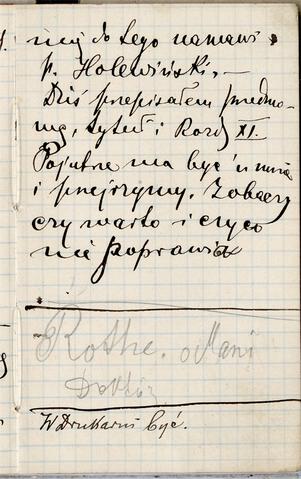 niej do tego namawi
p. Holewiński, —
Dziś przepisałem przedmo-
mę, tytuł i Rozdz XI.
Pojutrze ma być u mnie
i przejrzymy. Zobaczy
czy warto i czy co
nie poprawia
Rothe. o Mani
Doktór
W Drukarni być.